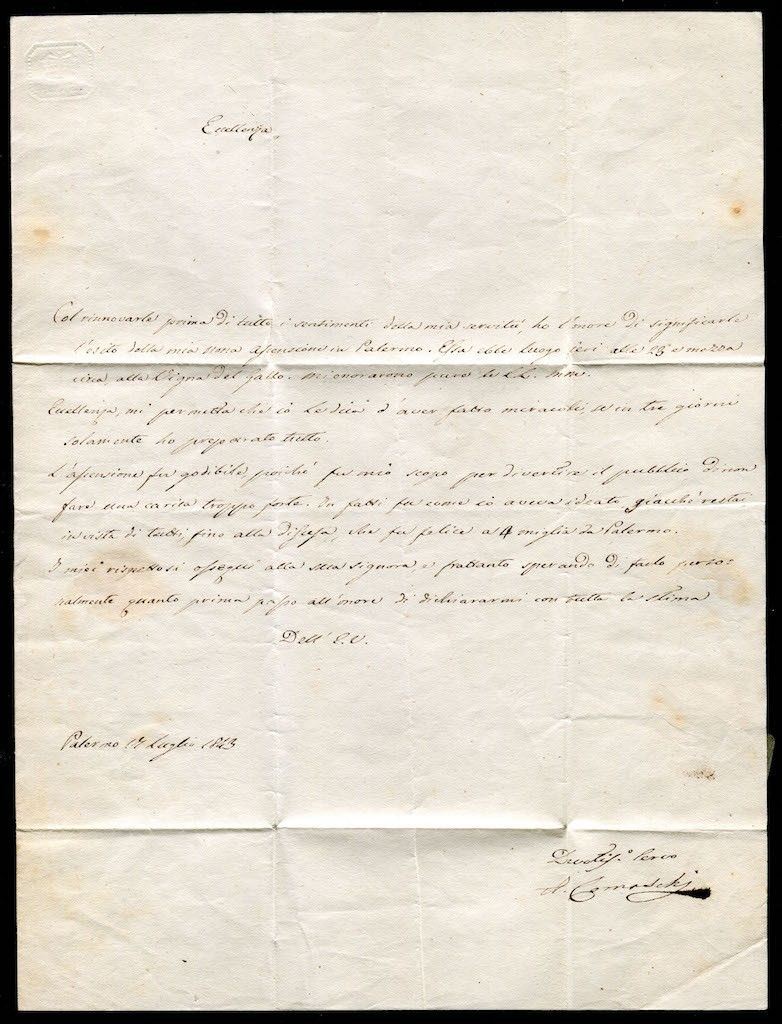 Eccellenza,
Col rinnovarle prima di tutto i sentimenti della mia servitù, ho l'onore di significarle
l'esito della mia ascensione in Palermo. Essa ebbe luogo jeri alle 23 e mezza
circa, alla Vigna del Gallo. mi onorarono pure le LL. MM.
Eccellenza, mi permetta che io Le dica d'aver fatto miracoli, se in tre giorni
solamente ho preparato tutto.
L'ascensione fu godibile, poiché fu mio scopo per divertire il pubblico di non
fare una carica troppo forte. In fatti fu come io aveva ideato, giacché restai
in vista di tutti, fino alla discesa, che fu felice a 4 miglia da Palermo.
I miei rispettosi ossequi alla sua signora e frattanto sperando di farlo perso=
nalmente quanto prima passo all'onore di dichiararmi con tutta la stima
Dell' E. V.
Palermo 17 Luglio 1843
Devotis.º Servo
A. Comaschj